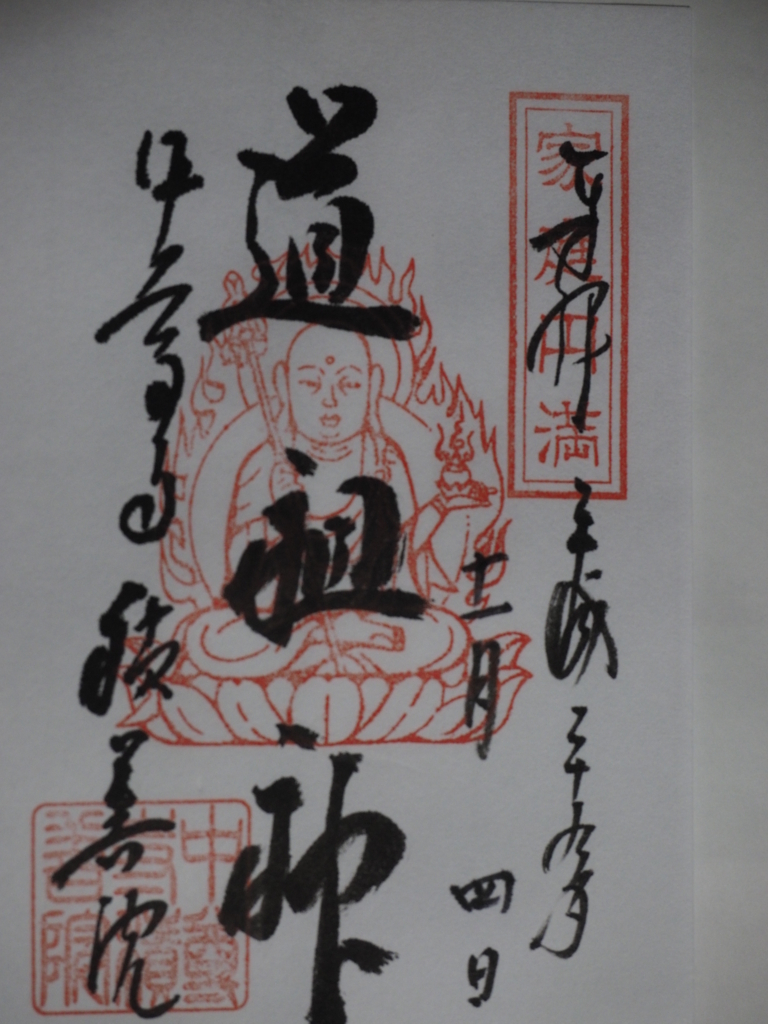 家庭円満
奉拝
平成二十九年
十二月
四日
道祖神
中尊寺 積善院
中尊
寺積
善院